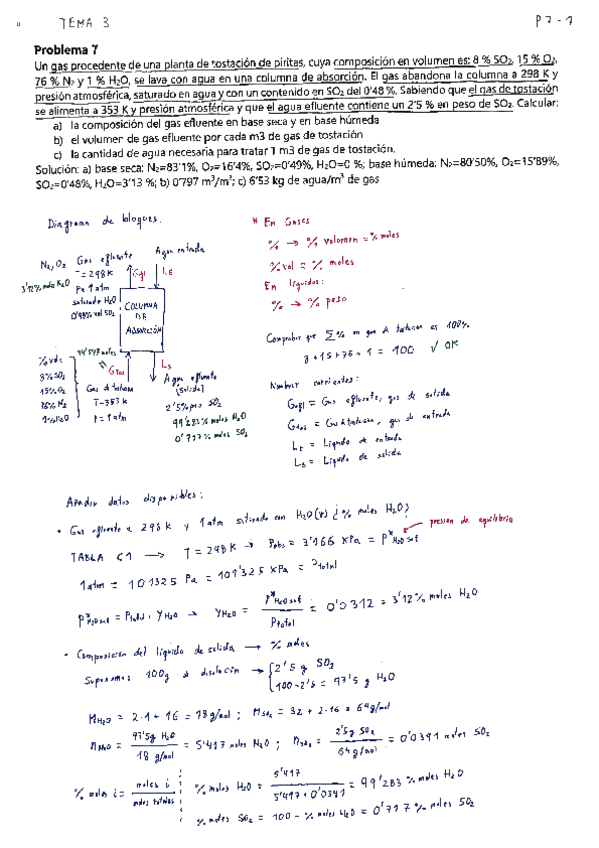 TEMA 3
P7-1
Problema 7
Un gas procedente de una planta de tostación de piritas, cuya composición en volumen es: 8 % SO₂, 15 % O₂,
76 % N₂ y 1 % H₂O, se lava con agua en una columna de absorción. El gas abandona la columna a 298 K y
presión atmosférica, saturado en agua y con un contenido en SO₂ del 0'48 %. Sabiendo que el gas de tostación
se alimenta a 353 K y presión atmosférica y que el agua efluente contiene un 2'5 % en peso de SO₂. Calcular:
a) la composición del gas efluente en base seca y en base húmeda
b) el volumen de gas efluente por cada m3 de gas de tostación
c) la cantidad de agua necesaria para tratar 1 m3 de gas de tostación.
Solución: a) base seca: N₂=83'1%, O₂=16'4%, SO₂=0'49%, H₂O=0 %; base húmeda: N₂=80'50%, O₂=15'89%,
SO₂=0'48%, H₂O=3'13 %; b) 0'797 m³/m³; c) 6'53 kg de agua/m³ de gas
Diagrama de bloques.
N₂, O₂ Gas efluente
T=298K
3'12% moles H₂O
P=1atm
saturado H₂O
0'48% vol SO₂
Gefl
Agua entrada
LE
COLUMNA
DE
ABSORCIÓN
% vol:
8% SO₂
15% O₂
76% N₂
1% H₂O
Gtos
Gas de tostación
T=353K
P=1atm
Ls
Agua efluente
(salida)
2'5% peso SO₂
99'283% moles H₂O
0'717% moles SO₂
* En Gases
% → % volumen = % moles
% vol = % moles
En líquidos:
% → % peso
Comprobar que Σ% en gas de tostación es 100%
8+15+76+1 = 100 ✓ OK
Nombrar corrientes:
Gefl = Gas efluente, gas de salida
Gtos = Gas tostación, gas de entrada
LE = Líquido de entrada
Ls = Líquido de salida
Añadir datos disponibles:
• Gas efluente a 298K y 1atm saturado con H₂O(v) ¿% moles H₂O?
TABLA C1 → T=298K → Pabs = 3'166 KPa = P*H₂O sat
presión de equilibrio
1atm = 101325 Pa = 101'325 KPa = Ptotal
P*H₂O sat = Ptotal · yH₂O → yH₂O = P*H₂O sat / Ptotal = 0'0312 = 3'12% moles H₂O
• Composición del líquido de salida → % moles
Suponemos 100g de disolución → { 2'5 g SO₂
100-2'5 = 97'5 g H₂O
MH₂O = 2·1+16 = 18g/mol ; MSO₂ = 32+2·16 = 64g/mol
nH₂O = 97'5g H₂O / 18 g/mol = 5'417 moles H₂O ; nSO₂ = 2'5g SO₂ / 64 g/mol = 0'0391 moles SO₂
% moles i = moles i / moles totales
% moles H₂O = 5'417 / 5'417+0'0391 = 99'283 % moles H₂O
% moles SO₂ = 100 - % moles H₂O = 0'717 % moles SO₂